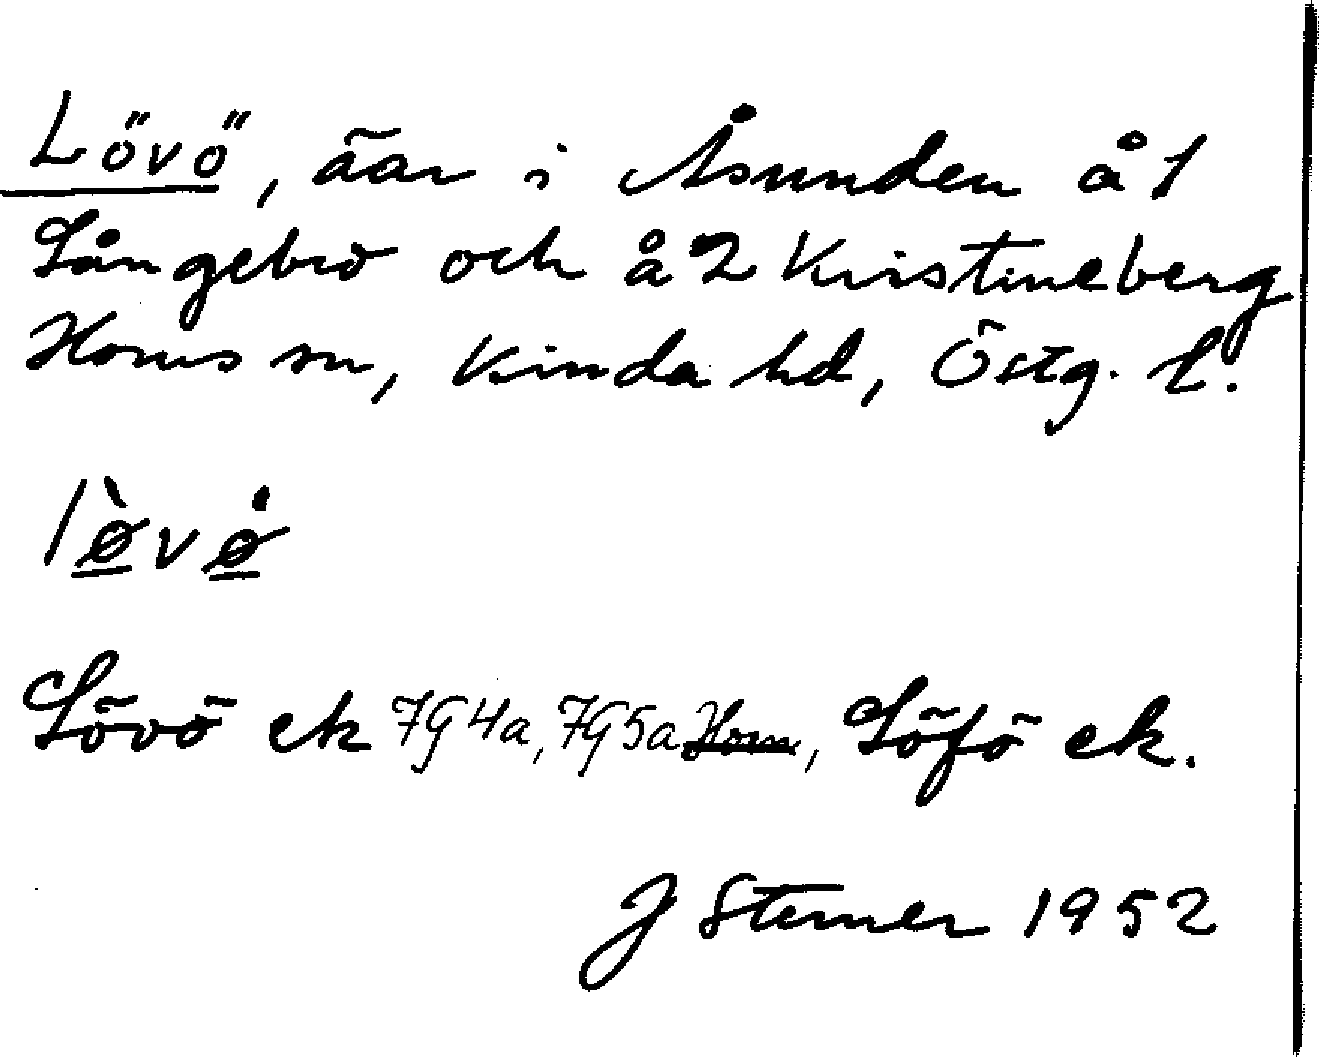 Lövö, öar i Åsunden å 1
Långebro och å 2 Kristineberg
Horns sn, Kinda hd, Östg. l.
lø̀vø̇
Lövö ek 7G4a, 7G5a Horn, Löfö ek.
J Sterner 1952